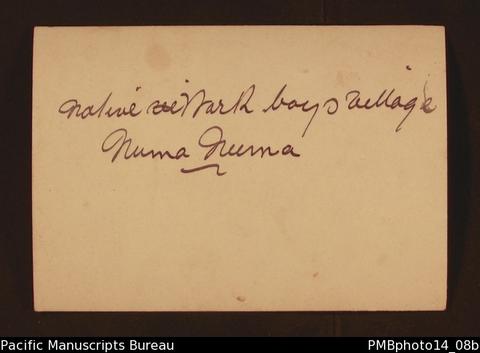 native work boys village
Numa Numa
Pacific Manuscripts Bureau
PMBphoto14_08b